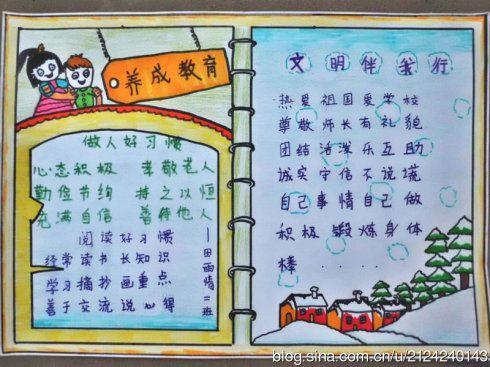 养成教育
做人好习惯
心态积极 孝敬老人
勤俭节约 持之以恒
充满自信 善待他人
阅读好习惯
经常读书长知识
学习摘抄画重点
善于交流说心得
一田雨情二班
文明伴我行
热爱祖国爱学校
尊敬师长有礼貌
团结活泼乐互助
诚实守信不说谎
自己事情自己做
积极锻炼身体
棒 . . . .
blog.sina.com.cn/u/2124240143